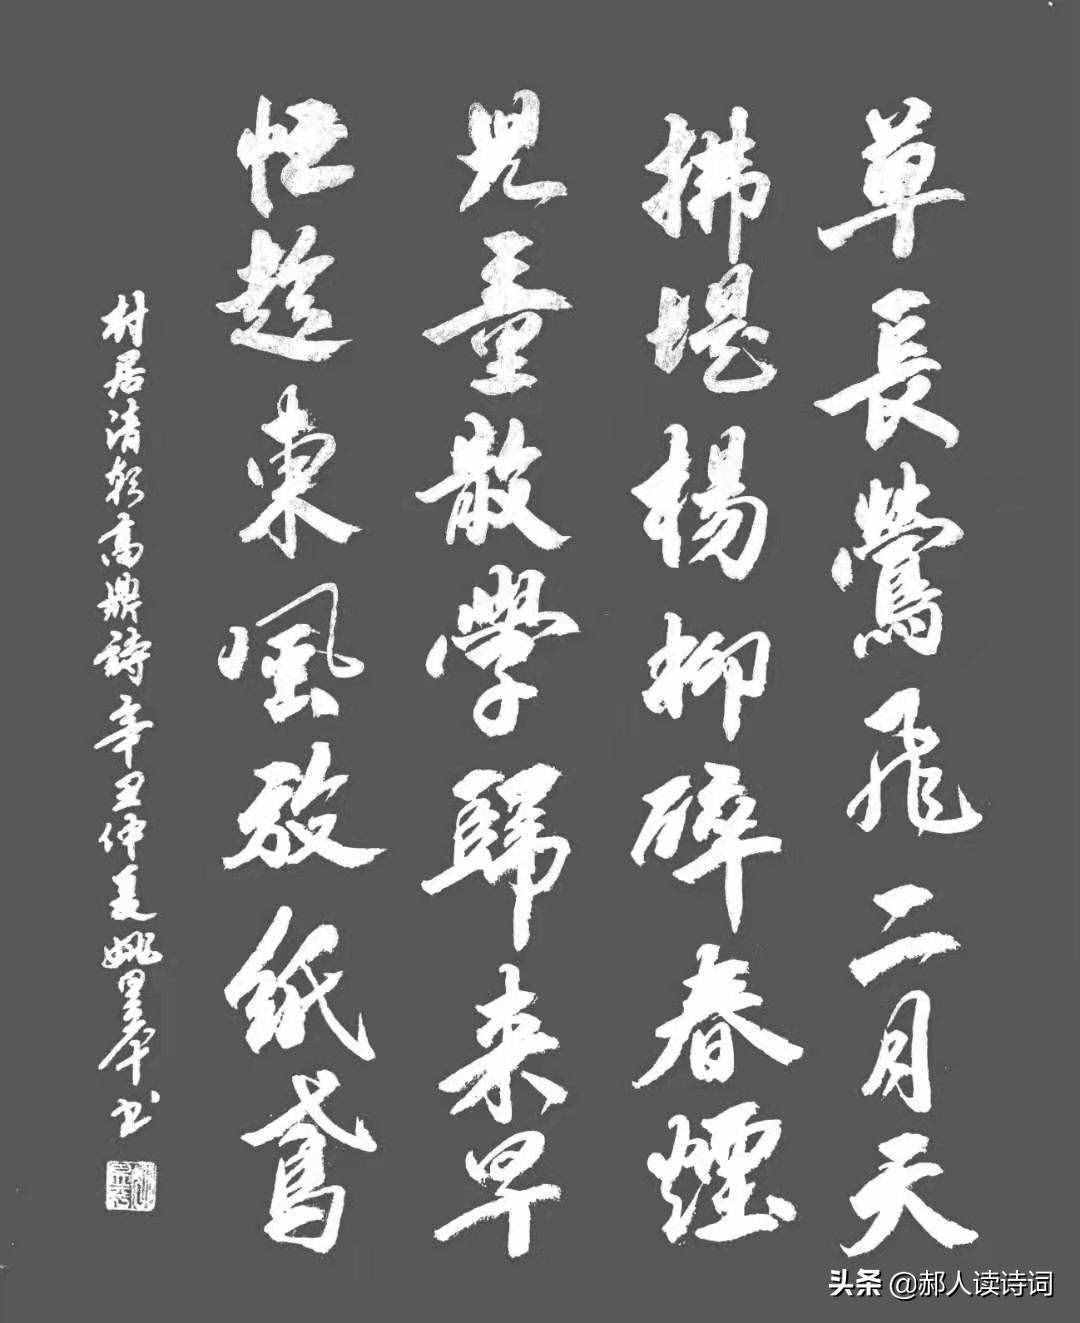 草長鶯飛二月天
拂堤楊柳醉春煙
兒童散學歸來早
忙趁東風放紙鳶
村居清朝高鼎詩辛丑仲夏姚书
头条 @郝人读诗词